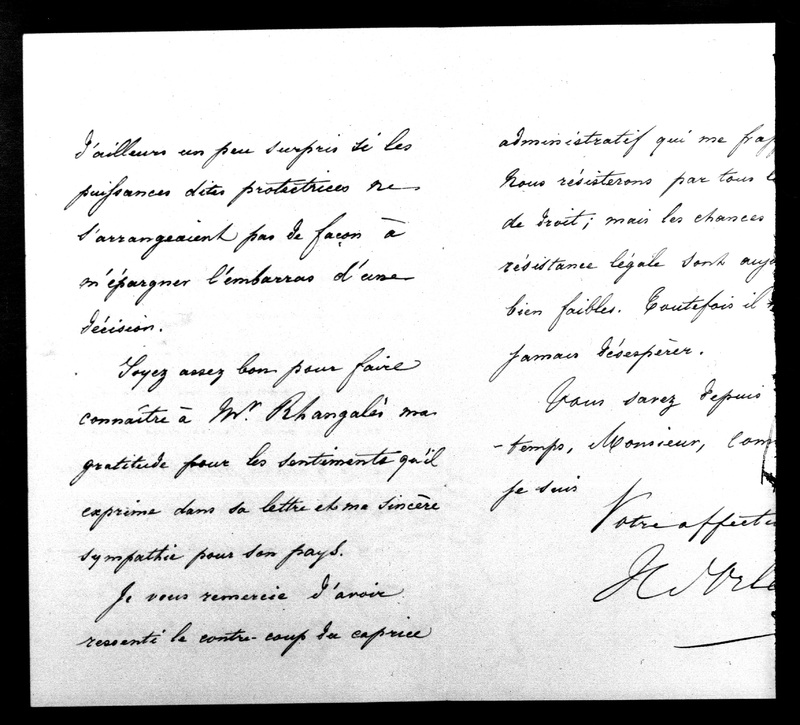 d'ailleurs un peu surpris si les
puissances dites protectrices ne
s'arrangeaient pas de façon à
m'épargner l'embarras d'une
décision.
Soyez assez bon pour faire
connaître à Mr. Rhangabès ma
gratitude pour les sentiments qu'il
exprime dans sa lettre et ma sincère
sympathie pour son pays.
Je vous remercie d'avoir
ressenti le contre-coup du caprice
administratif qui me frap
Nous résisterons par tous l
de droit; mais les chances
résistance légale sont auj
bien faibles. Toutefois il
jamais désespérer.
Vous savez depuis
-temps, Monsieur, com
je suis
Votre affecti
H d'Orlé